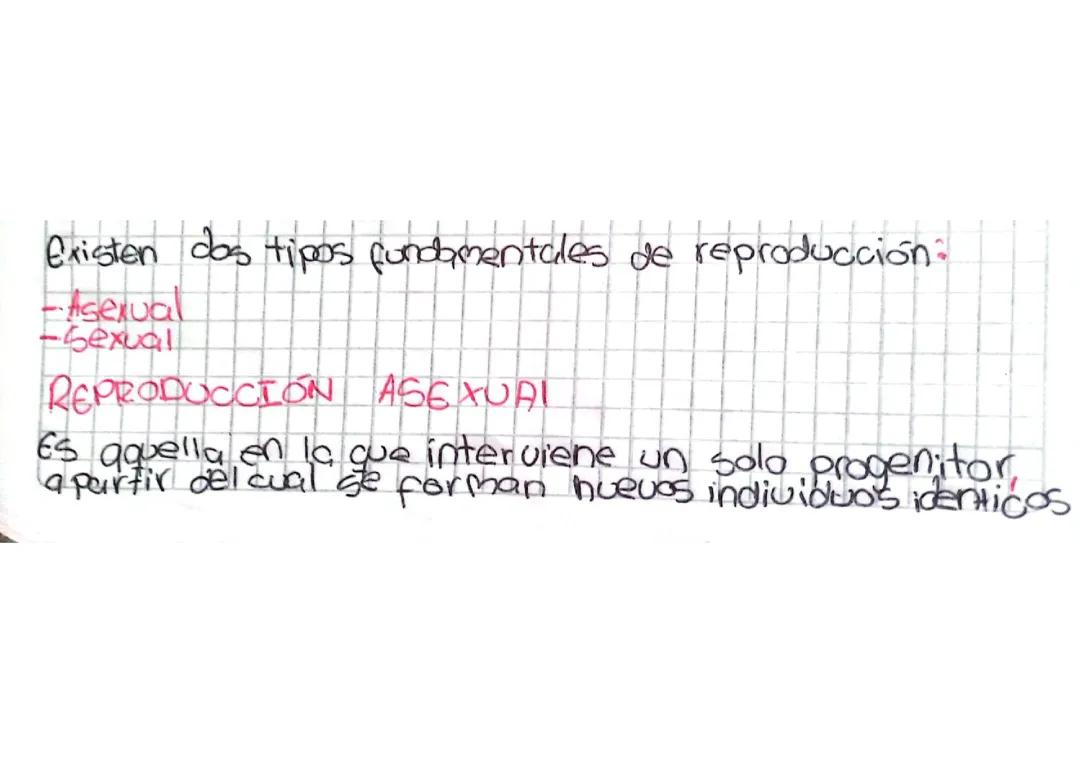 Existen dos tipos fundamentales de reproducción:
- Asexual
- Sexual
REPRODUCCIÓN ASEXUAl
Es aquella en la que interviene un solo progenitor,
a partir del cual se forman nuevos individuos identicos